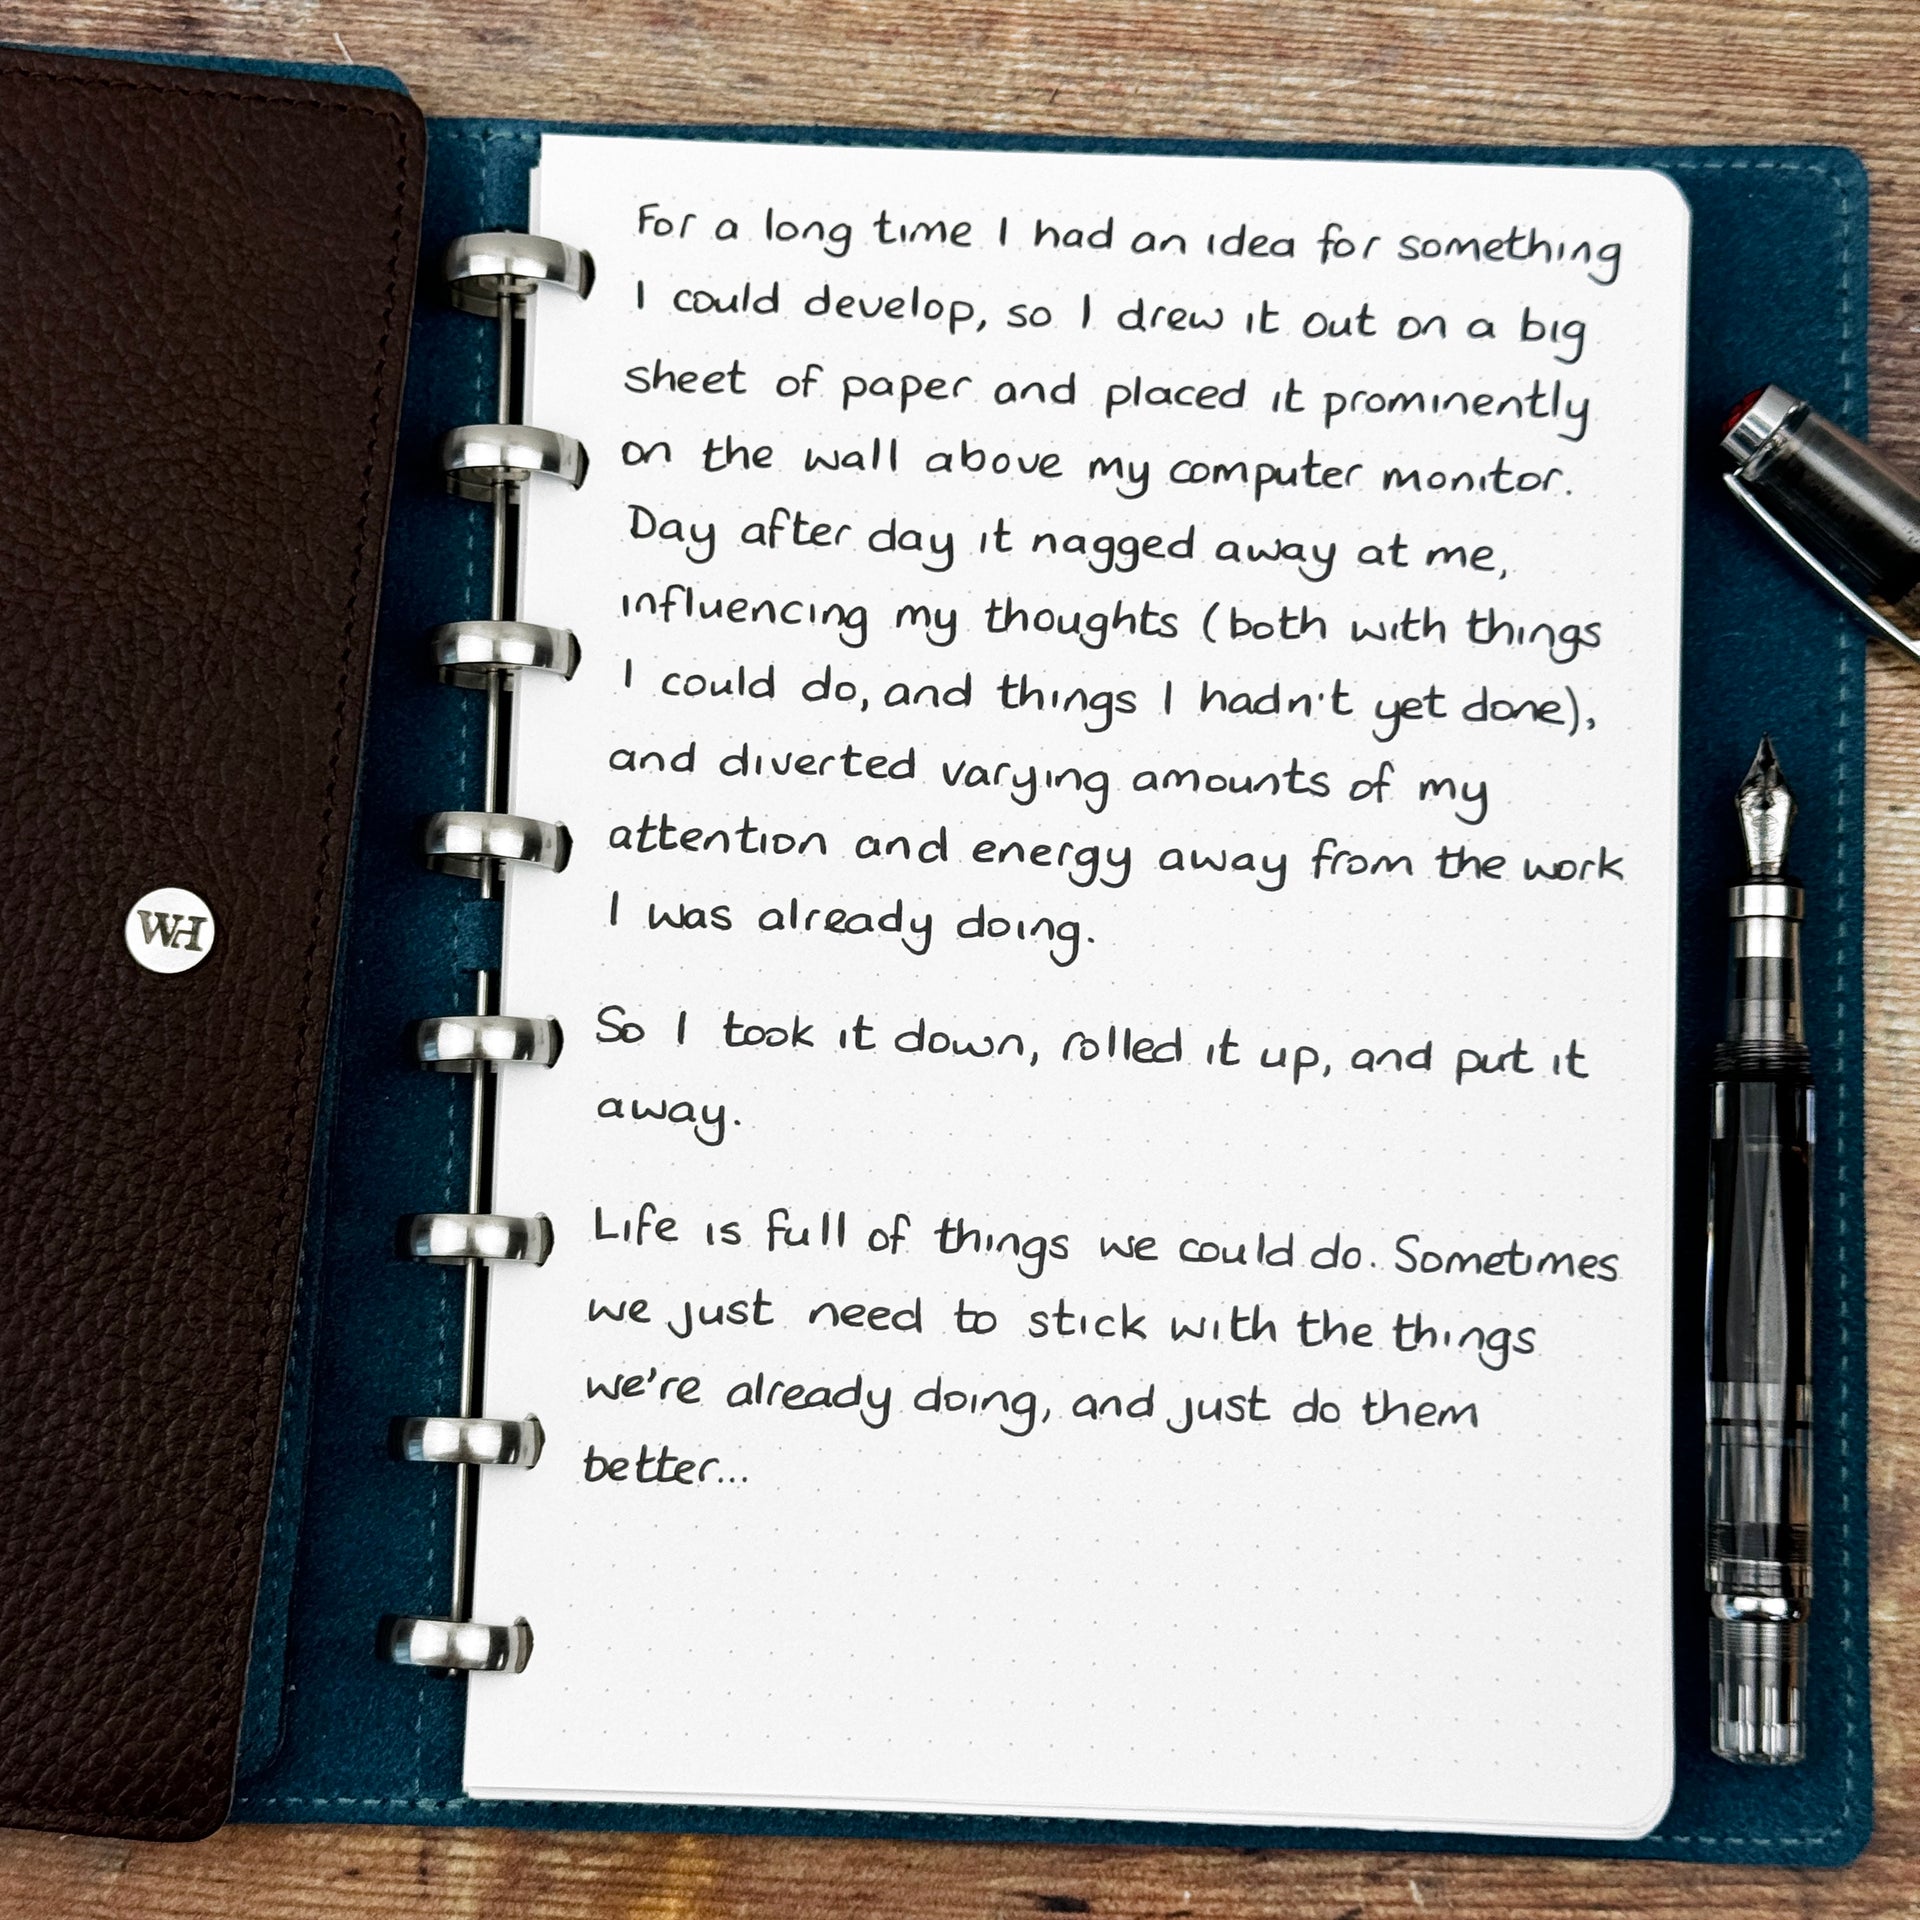 WH
For a long time I had an idea for something
I could develop, so I drew it out on a big
sheet of paper and placed it prominently
on the wall above my computer monitor.
Day after day it nagged away at me,
influencing my thoughts (both with things
I could do, and things I hadn't yet done),
and diverted varying amounts of my
attention and energy away from the work
I was already doing.
So I took it down, rolled it up, and put it
away.
Life is full of things we could do. Sometimes
we just need to stick with the things
we're already doing, and just do them
better...